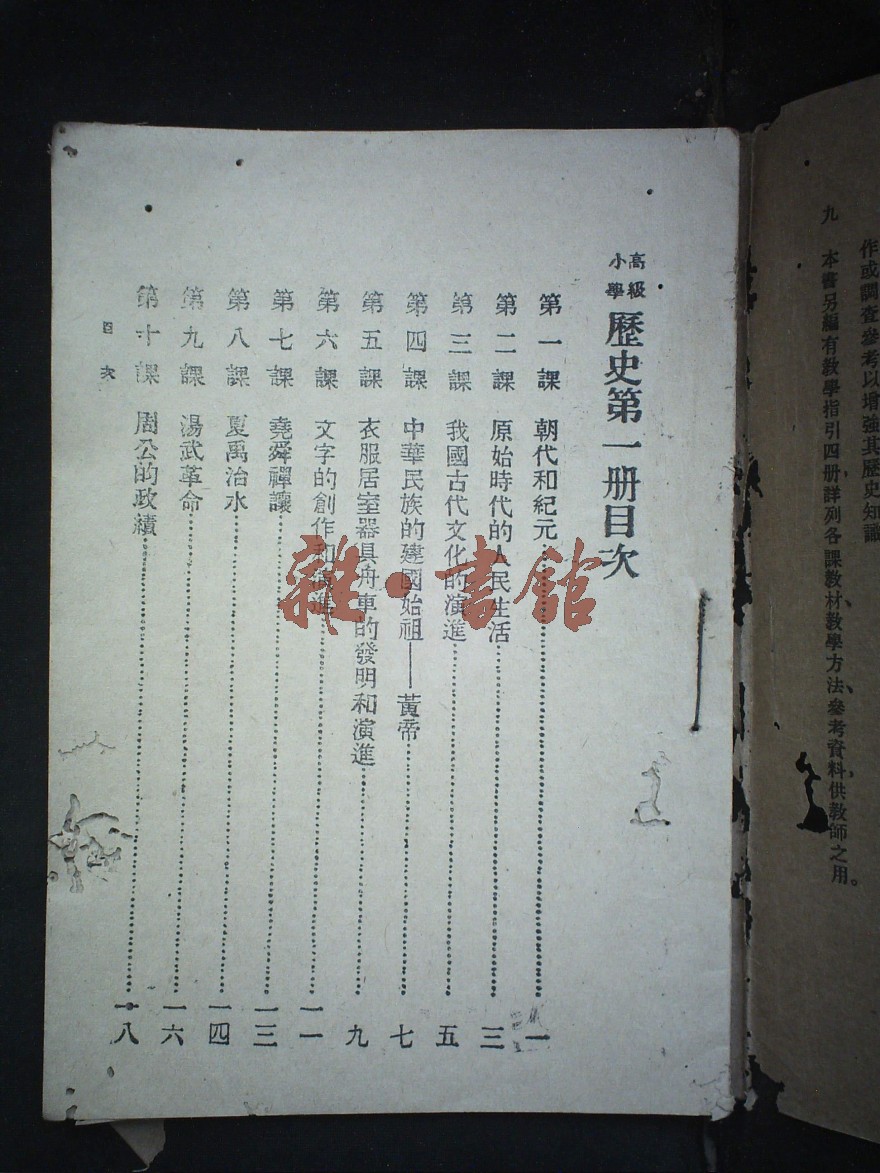 作或調查參考以增強其歷史知識
九 本書另編有教學指引四册詳列各課教材教學方法參考資料供教師之用。
高級小學 歷史第一册目次
第一課 朝代和紀元 一
第二課 原始時代的人民生活 三
第三課 我國古代文化的演進 五
第四課 中華民族的建國始祖——黃帝 七
第五課 衣服居室器具舟車的發明和演進 九
第六課 文字的創作和演進 一一
第七課 堯舜禪讓 一三
第八課 夏禹治水 一四
第九課 湯武革命 一六
第十課 周公的政績 一八
目次
雜·書館